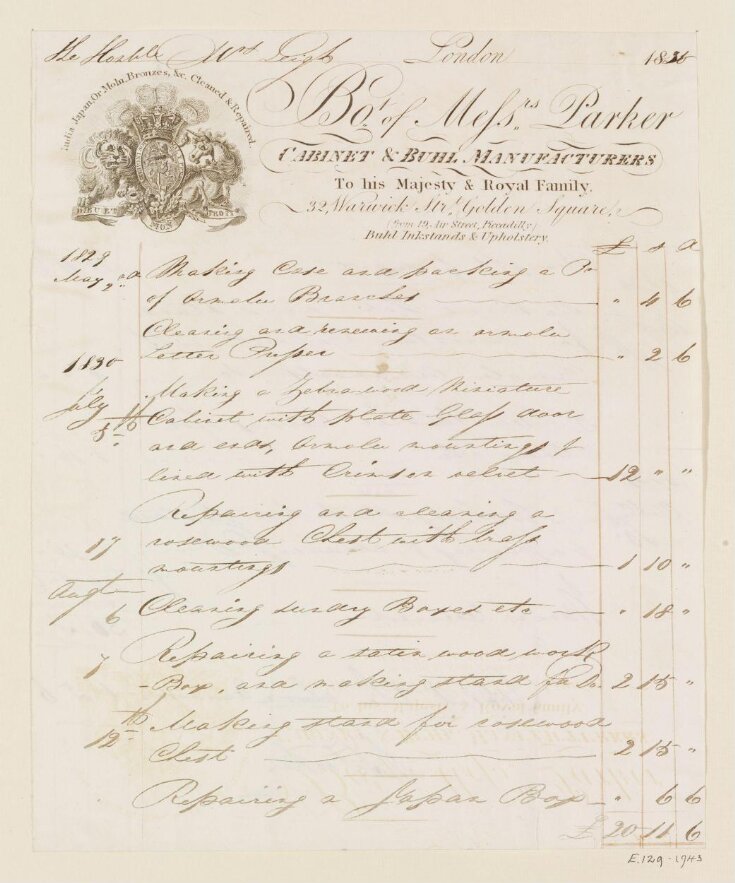 The Honble Mrs Leigh London 1830
India Japan, Or Molu, Bronzes, &c. Cleaned & Repaired.
Bot. of Messrs. Parker
CABINET & BUHL MANUFACTURERS
To his Majesty & Royal Family.
32, Warwick Str. Golden Square,
from 19, Air Street, Piccadilly
Buhl Inkstands & Upholstery.
DIEU ET MON DROIT
£ s d
1829
May 2nd Making Case and packing a Pr
of Ormolu Branches " 4 6
Cleaning and renewing an ormolu
Letter Presser " 2 6
1830
July Making a Zebra wood Miniature
Cabinet with plate Glass door
and ends, Ormolu mountings &
lined with Crimson velvet 12 " "
Repairing and cleaning a
17 rosewood Chest with brass
mountings 1 10 "
Augt
6 Cleaning sundry Boxes etc " 18 "
7 Repairing a satin wood work
Box, and making stand for Do 2 15 "
12th Making stand for rosewood
Chest 2 15 "
Repairing a Japan Box " 6 6
£ 20 11 6
E.129-1943